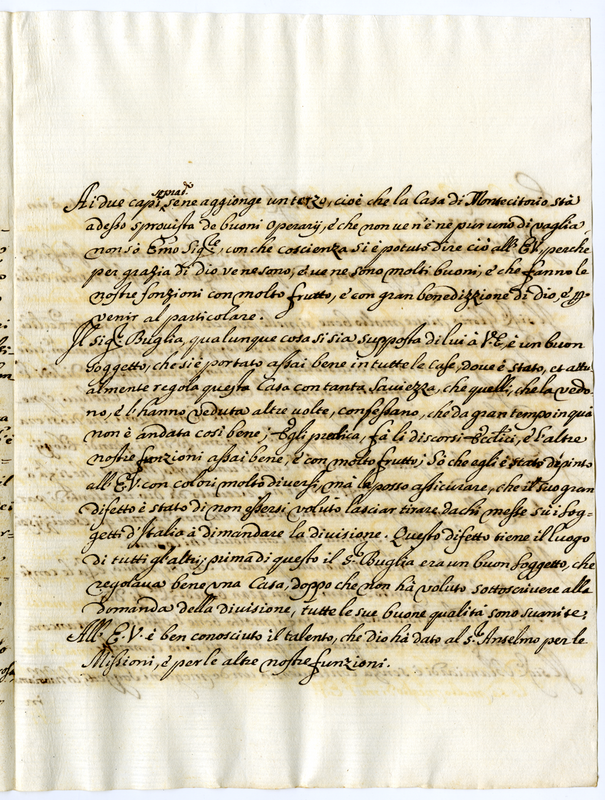 Ai due capi sene aggionge un terzo, cioè che la Casa di Montecitorio stà
adesso sprovista de buoni operarij, è che non ve n'è nè pur uno di vaglia
non sò Emo Sigre, con che coscienza si è potuto dire ciò all'E.V., perche
per grazia di Dio ve ne sono, è ve ne sono molti buoni, è che fanno le
nostre fonzioni con molto frutto, è con gran benedizzione di Dio, è p
venir al particolare.
Il sigr Buglia, qualunque cosa si sia supposta di lui à V.E., è un buon
soggetto, che si è portato assai bene in tutte le case, dove è stato, et attu-
almente regola questa Casa con tanta saviezza, che quelli, che la vedo-
no, è l'hanno veduta altre volte, confessano, che da gran tempo in quà
non è andata così bene; Egli predica, fà li discorsi Eccl.ici, è l'altre
nostre funzioni assai bene, è con molto frutto; Sò che agli è stato depinto
all'E.V. con colori molto diversi, mà la posso assicurare, che il suo gran
difetto è stato di non essersi voluto lasciar tirare, da chi messe sù i sog-
getti d'Italia à dimandare la divisione. Questo difetto tiene il luogo
di tutti gl'altri; prima di questo il sr Buglia era un buon soggetto, che
regolava bene una Casa, doppo che non hà voluto sottoscrivere alla
domanda della divisione, tutte le sue buone qualità sono suanite;
All'E.V. è ben conosciuto il talento, che Dio hà dato al sr Anselmo per le
Missioni, è per le altre nostre funzioni.